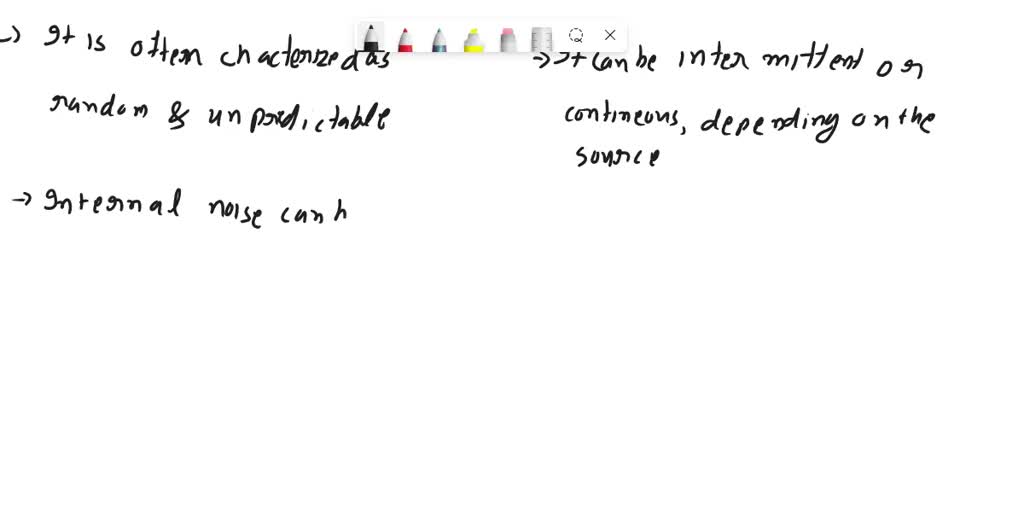 → It is often chacterized as
random & unpredictable
→ Internal noise can h
→ It can be intermittent or
contineous, depending on the
source